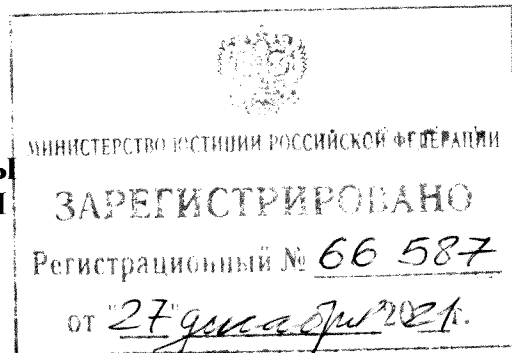 МИНИСТЕРСТВО ЮСТИЦИИ РОССИЙСКОЙ ФЕДЕРАЦИИ
Ы
ЗАРЕГИСТРИРОВАНО
Регистрационный № 66 587
от "27" декабря 2021 г.